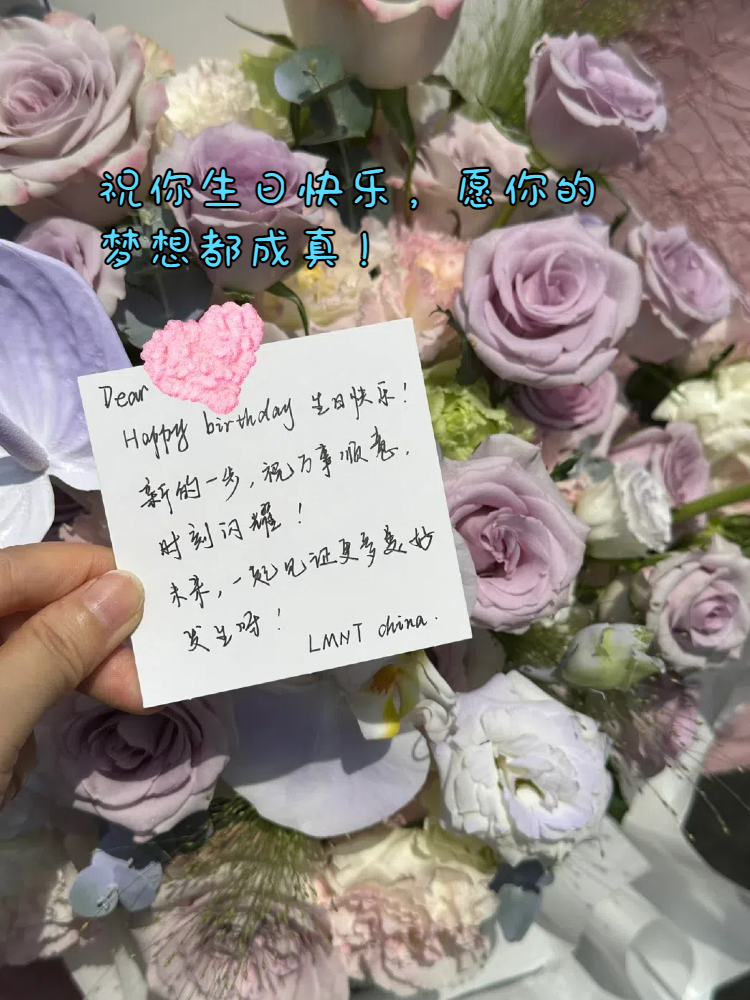 祝你生日快乐，愿你的
梦想都成真！
Dear
Happy birthday 生日快乐！
新的一步，祝万事顺意，
时刻闪耀！
未来，一起见证更多美妙
发生呀！
LMNT china.